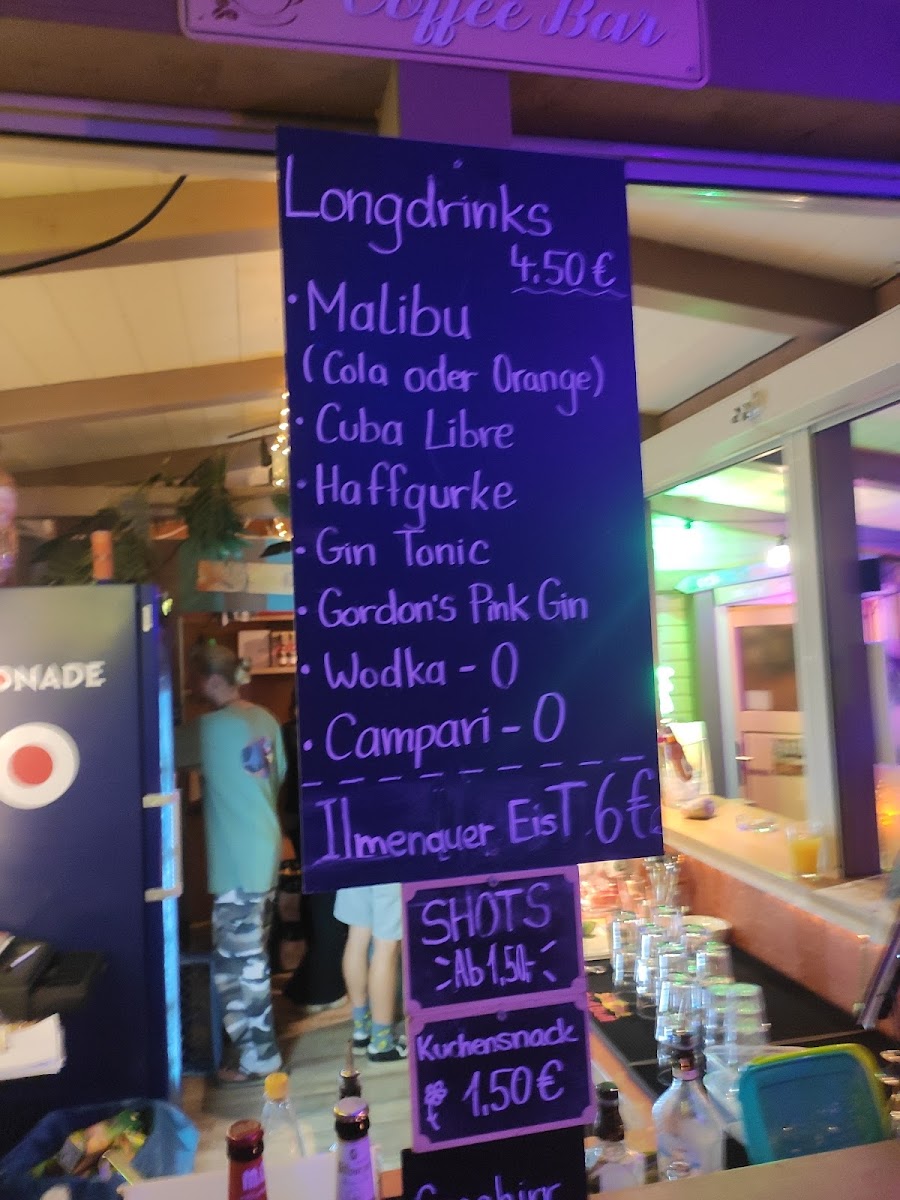 Coffee Bar
Longdrinks
4.50 €
· Malibu
(Cola oder Orange)
· Cuba Libre
· Haffgurke
· Gin Tonic
· Gordon's Pink Gin
· Wodka - O
· Campari - O
Ilmenauer EisT 6€
SHOTS
Ab 1,50,-
Kuchensnack
1,50 €
ONADE